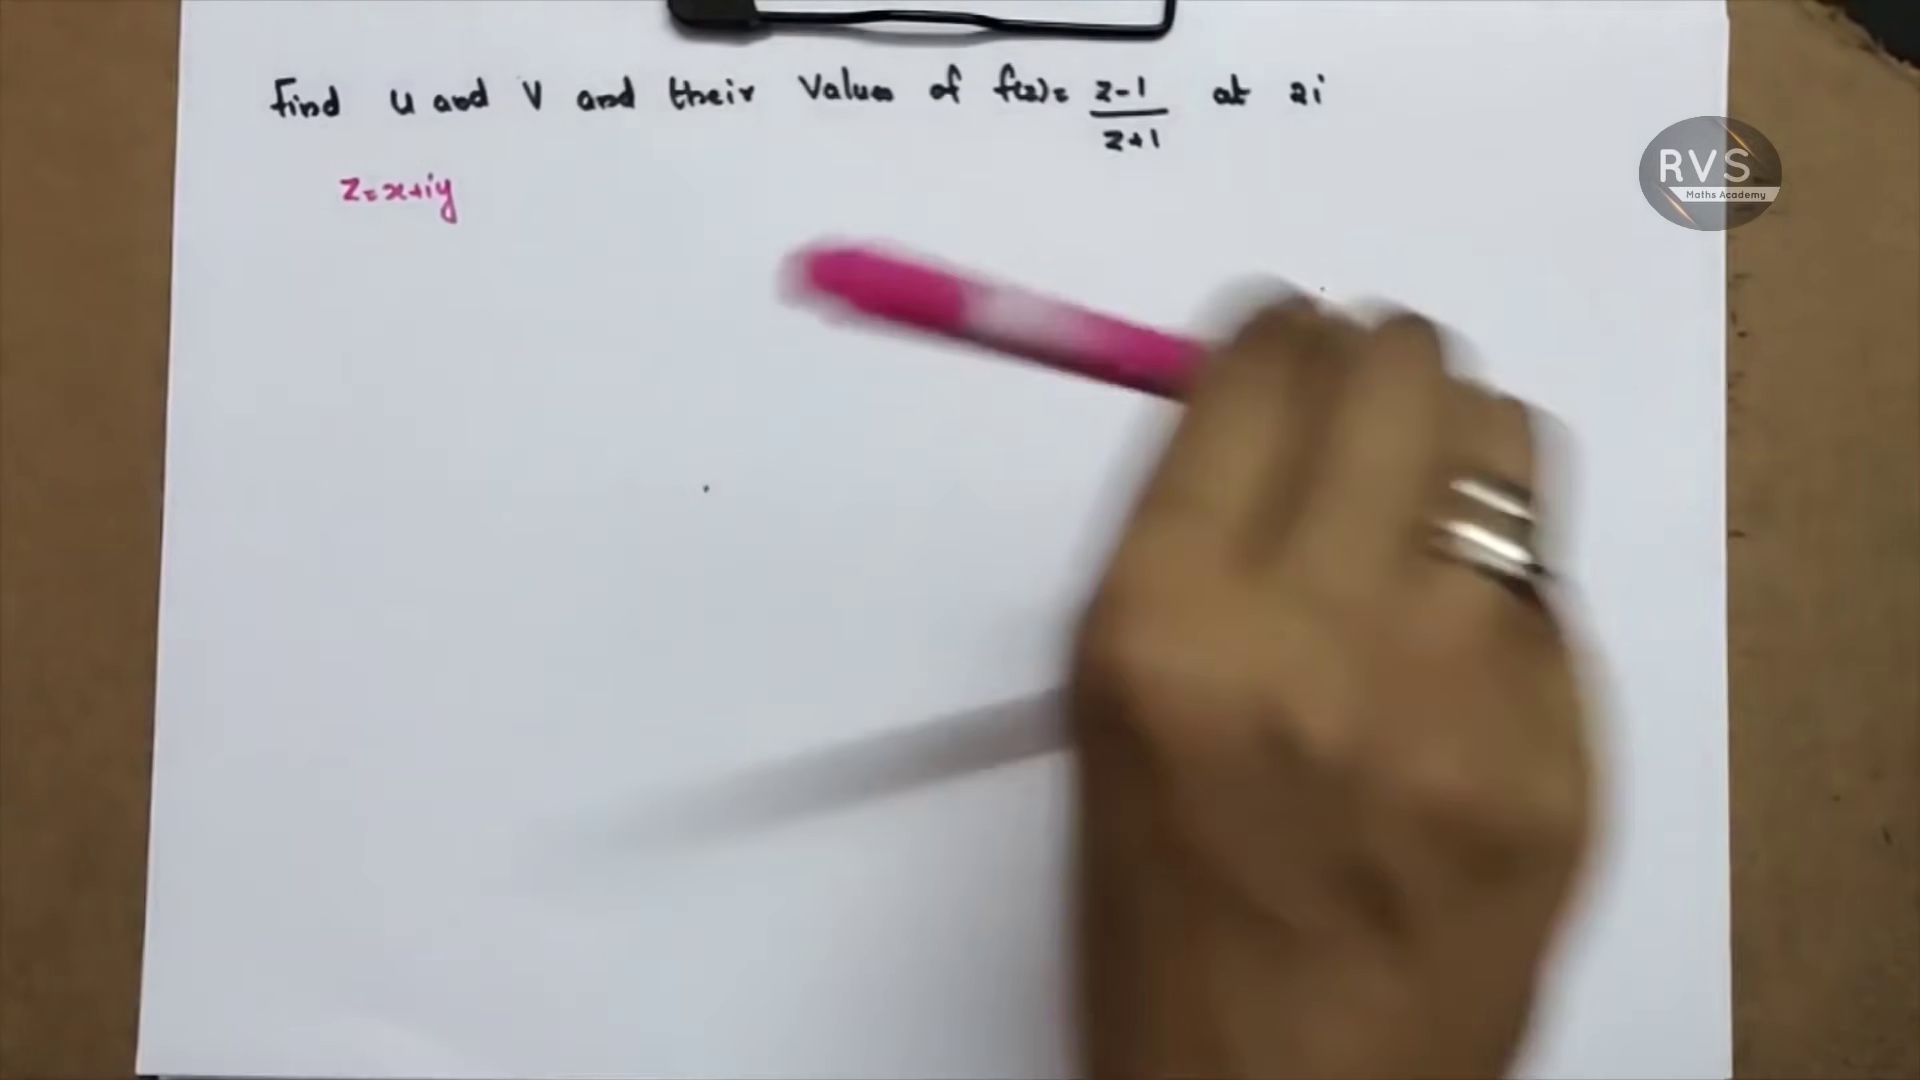 Find u and v and their values of f(z) = z-1/z+1 at 2i
z=x+iy
RVS
Maths Academy